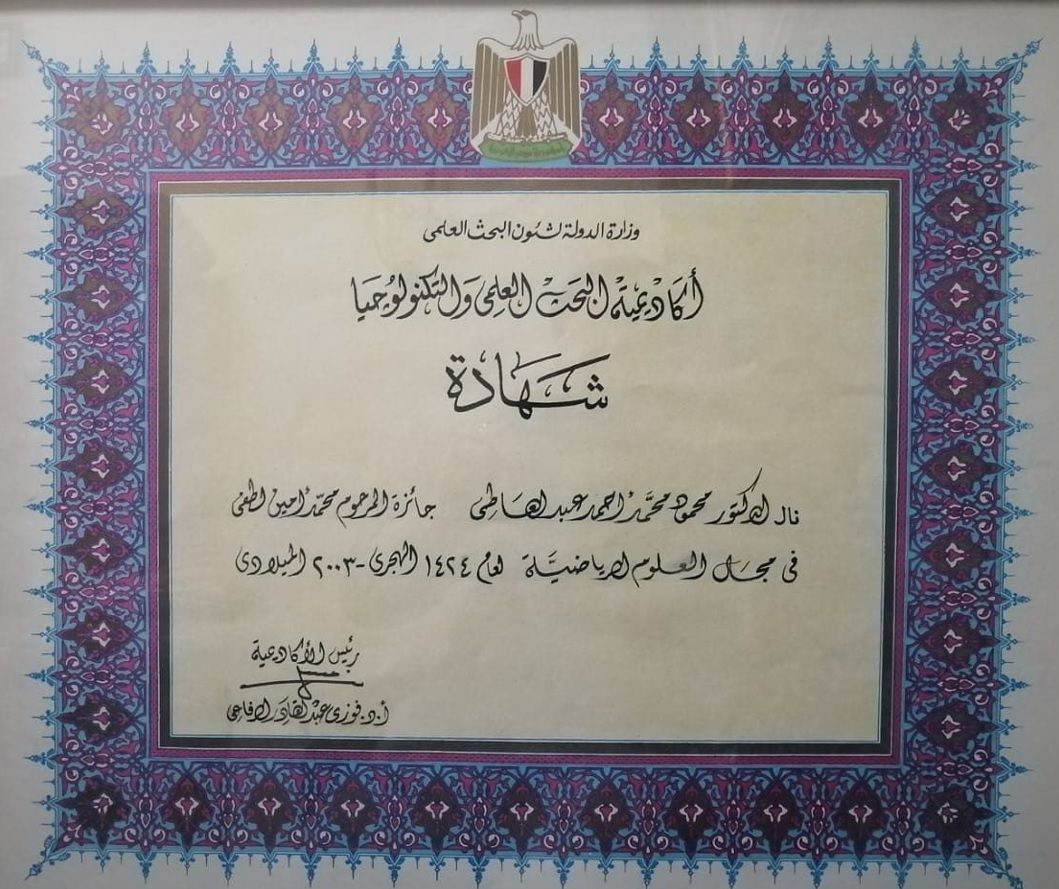 وزارة الدولة لشئون البحث العلمى
أكاديمية البحث العلمى والتكنولوجيا
شهادة
نال الدكتور محمود محمد أحمد عبد العاطى جائزة المرحوم محمد أمين لطفى
فى مجال العلوم الرياضية لعام ١٤٢٤ الهجرى - ٢٠٠٣ الميلادى
رئيس الأكاديمية
أ.د. فوزى عبد القادر الرفاعى